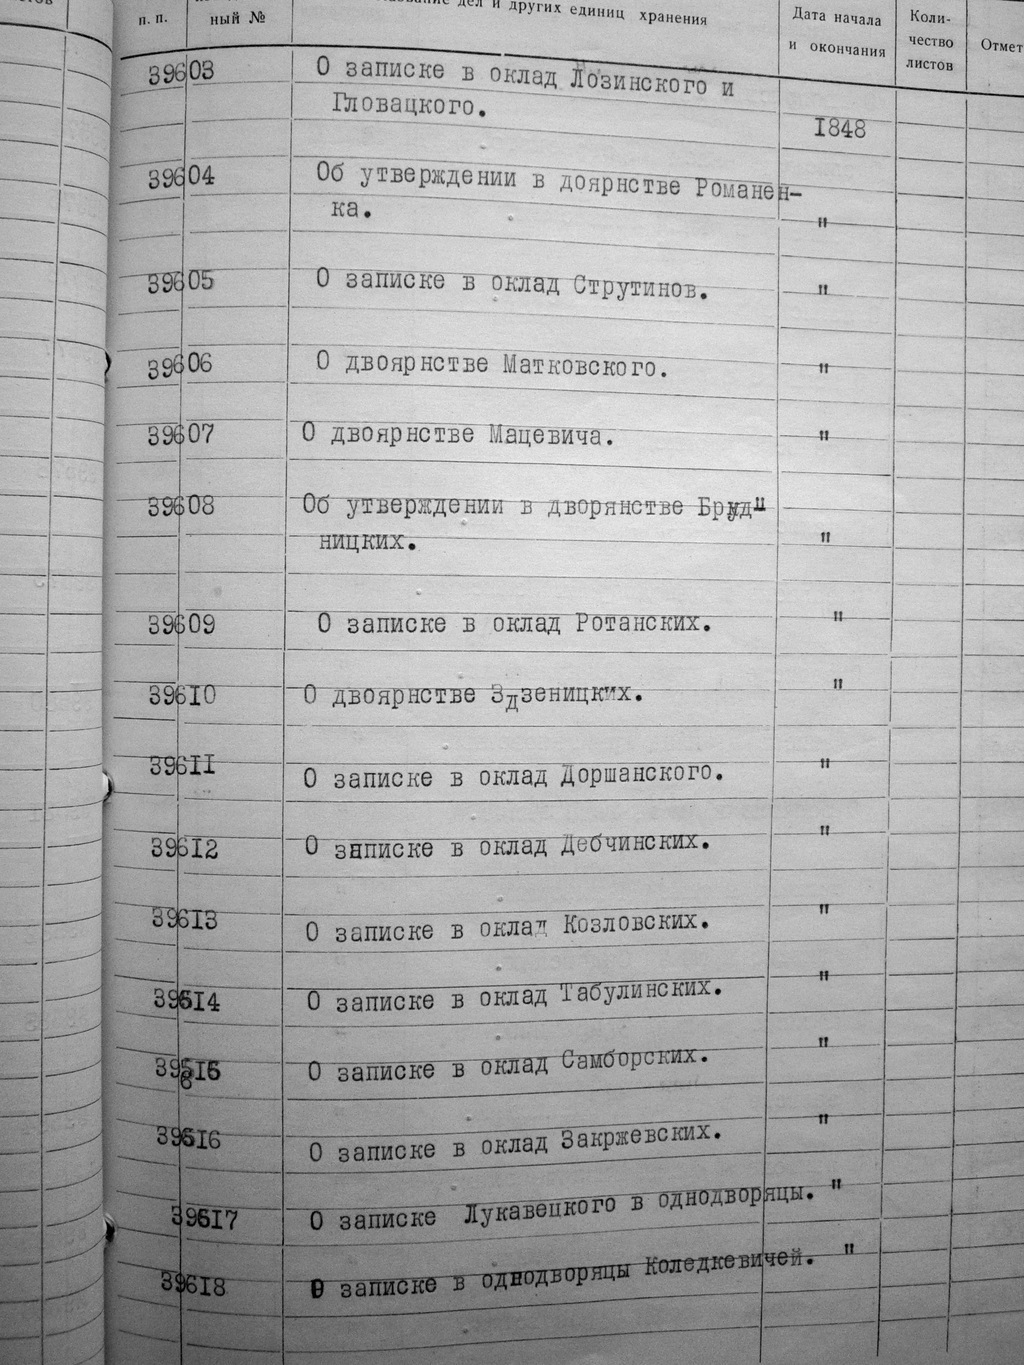 п. п.
ный №
дел и других единиц хранения
Дата начала
и окончания
Коли-
чество
листов
Отмет
39603 О записке в оклад Лозинского и
Гловацкого. 1848
39604 Об утверждении в доярнстве Романен-
ка. "
39605 О записке в оклад Струтинов. "
39606 О двоярнстве Матковского. "
39607 О двоярнстве Мацевича. "
39608 Об утверждении в дворянстве Бруд-
ницких. "
39609 О записке в оклад Ротанских. "
39610 О двоярнстве Здзеницких. "
39611 О записке в оклад Доршанского. "
39612 О зяписке в оклад Дебчинских. "
39613 О записке в оклад Козловских. "
39614 О записке в оклад Табулинских. "
39615 О записке в оклад Самборских. "
39616 О записке в оклад Закржевских. "
39617 О записке Лукавецкого в однодворяцы. "
39618 О записке в однодворяцы Коледкевичей. "